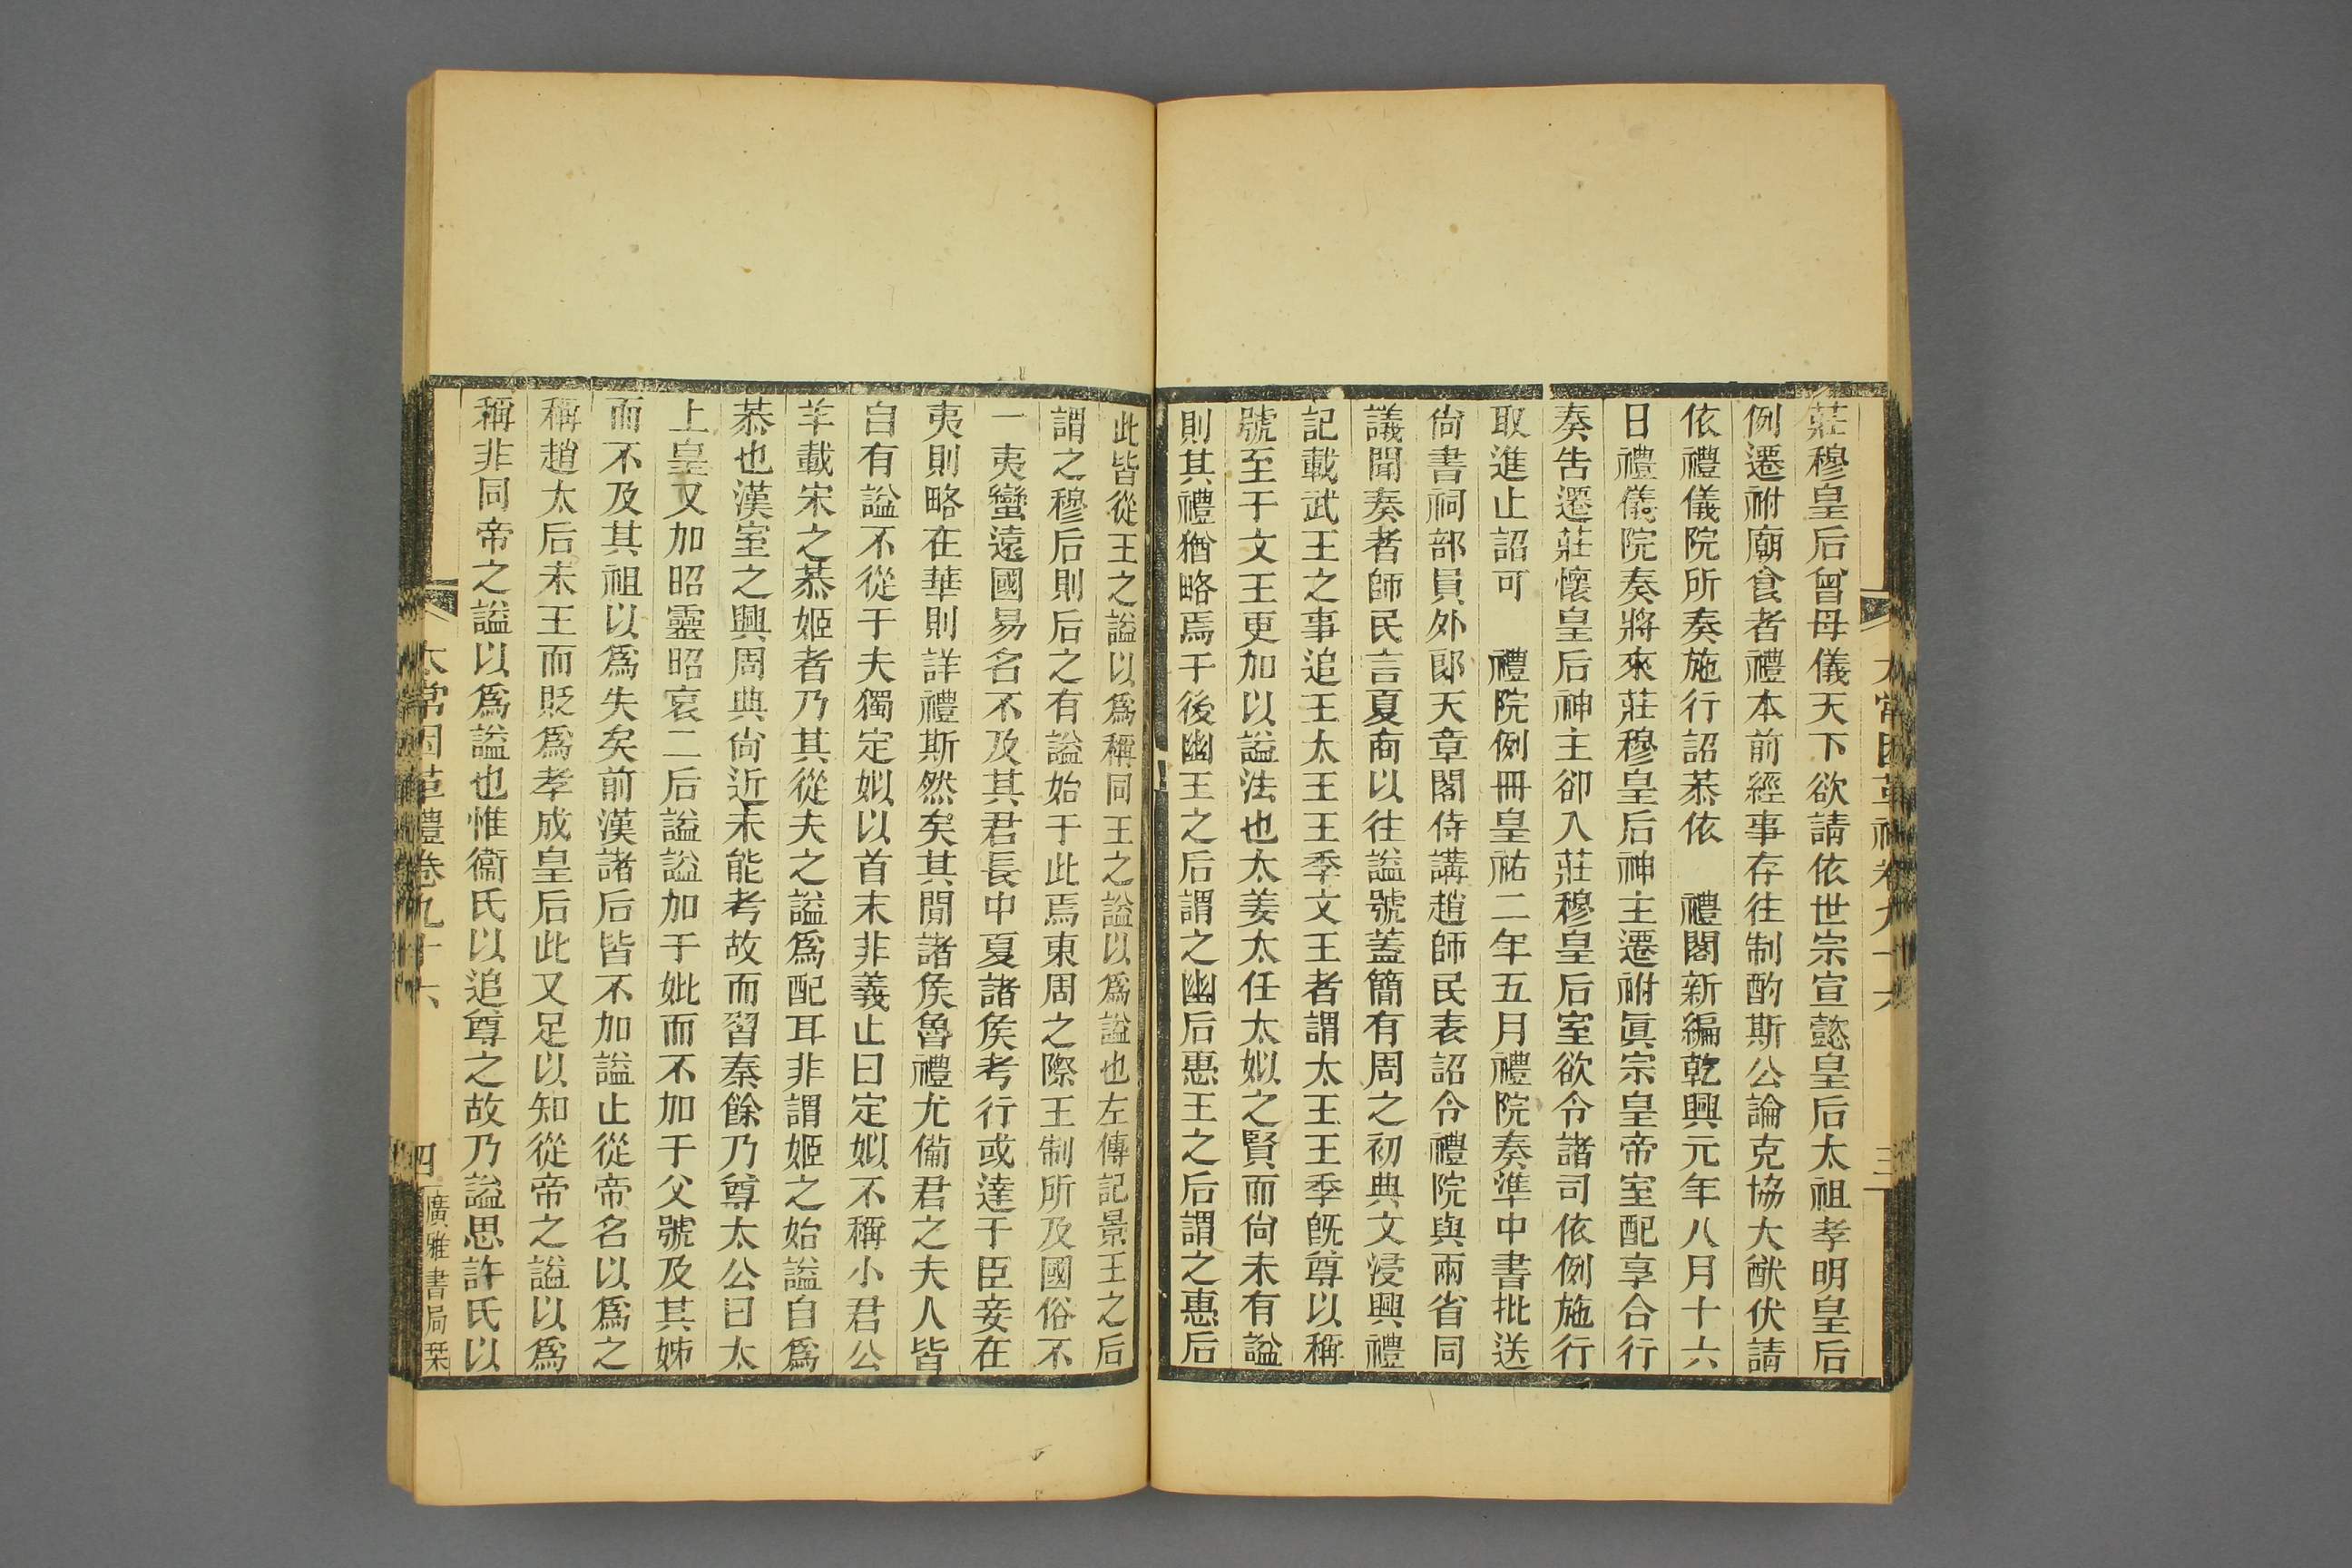 莊穆皇后曾母儀天下欲請依世宗宣懿皇后太祖孝明皇后
例遷祔廟食者禮本前經事存往制酌斯公論克協大猷伏請
依禮儀院所奏施行詔恭依　禮閣新編乾興元年八月十六
日禮儀院奏將來莊穆皇后神主遷祔眞宗皇帝室配享合行
奏告遷莊懷皇后神主卻入莊穆皇后室欲令諸司依例施行
取進止詔可　禮院例冊皇祐二年五月禮院奏準中書批送
尙書祠部員外郞天章閣侍講趙師民表詔令禮院與兩省同
議聞奏者師民言夏商以往謚號蓋簡有周之初典文浸興禮
記載武王之事追王太王王季文王者謂太王王季旣尊以稱
號至于文王更加以謚法也太姜太任太姒之賢而尙未有謚
則其禮猶略焉于後幽王之后謂之幽后惠王之后謂之惠后
此皆從王之謚以爲稱同王之謚以爲謚也左傳記景王之后
謂之穆后則后之有謚始于此焉東周之際王制所及國俗不
一夷蠻遠國易名不及其君長中夏諸侯考行或達于臣妾在
夷則略在華則詳禮斯然矣其閒諸侯魯禮尤備君之夫人皆
自有謚不從于夫獨定姒以首末非義止曰定姒不稱小君公
羊載宋之恭姬者乃其從夫之謚爲配耳非謂姬之始謚自爲
恭也漢室之興周典尙近未能考故而習秦餘乃尊太公曰太
上皇又加昭靈昭哀二后謚謚加于妣而不加于父號及其姊
而不及其祖以爲失矣前漢諸后皆不加謚止從帝名以爲之
稱趙太后未王而貶爲孝成皇后此又足以知從帝之謚以爲
稱非同帝之謚以爲謚也惟衞氏以追尊之故乃謚思許氏以
太常因革禮卷九十六
四
廣雅書局栞